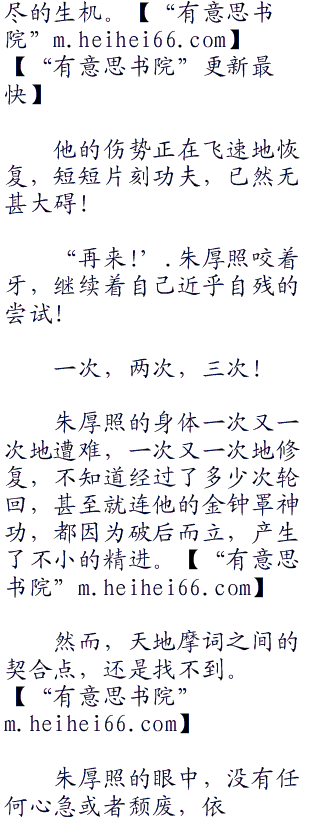 尽的生机。【“有意思书
院”m.heihei66.com】
【“有意思书院”更新最
快】
他的伤势正在飞速地恢
复，短短片刻功夫，已然无
甚大碍！
“再来！’.朱厚照咬着
牙，继续着自己近乎自残的
尝试！
一次，两次，三次！
朱厚照的身体一次又一
次地遭难，一次又一次地修
复，不知道经过了多少次轮
回，甚至就连他的金钟罩神
功，都因为破后而立，产生
了不小的精进。【“有意思
书院”m.heihei66.com】
然而，天地摩词之间的
契合点，还是找不到。
【“有意思书院”
m.heihei66.com】
朱厚照的眼中，没有任
何心急或者颓废，依